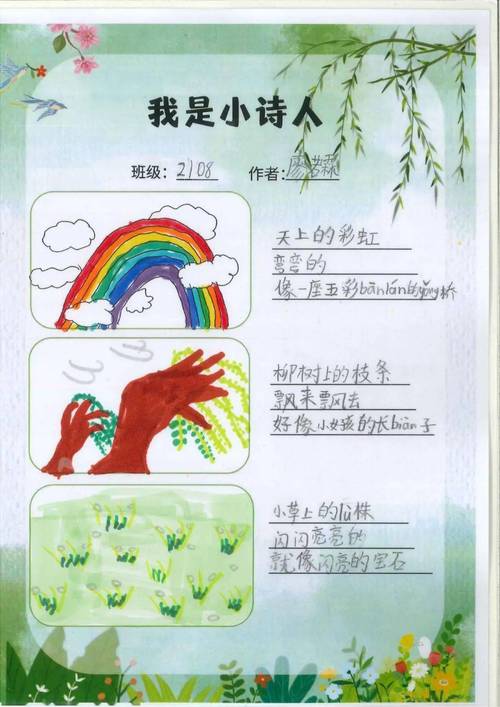 我是小诗人
班级：2108 作者：廖若霖
天上的彩虹
弯弯的
像一座五彩bānlán的gǒng桥
柳树上的枝条
飘来飘去
好像小女孩的长biàn子
小草上的lù株
闪闪亮亮的
就像闪亮的宝石